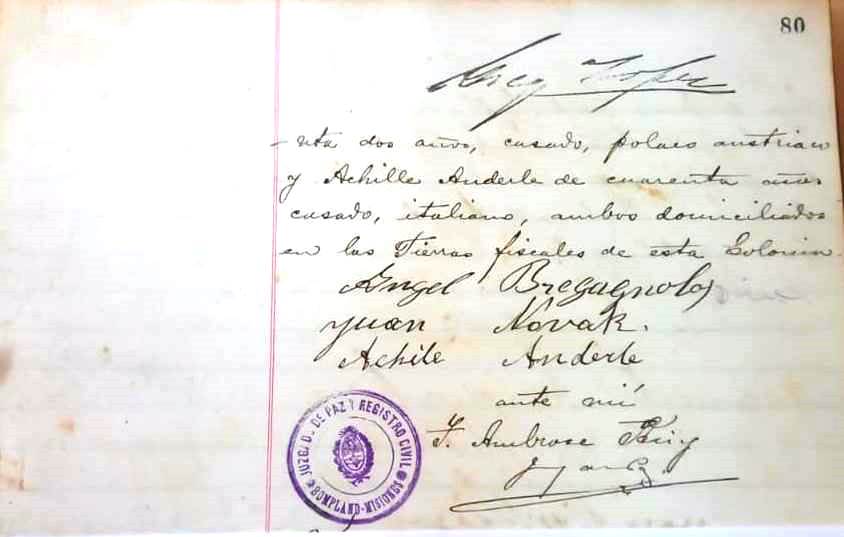 80
-nta dos años, casado, polaco austriaco
y Achille Anderle de cuarenta años
casado, italiano, ambos domiciliados
en las Tierras fiscales de esta Colonia.
Angel Bregagnolo
Juan Novak.
Achile Anderle
ante mí
Ambrose
JUZGADO DE PAZ Y REGISTRO CIVIL
BOMPLAND-MISIONES